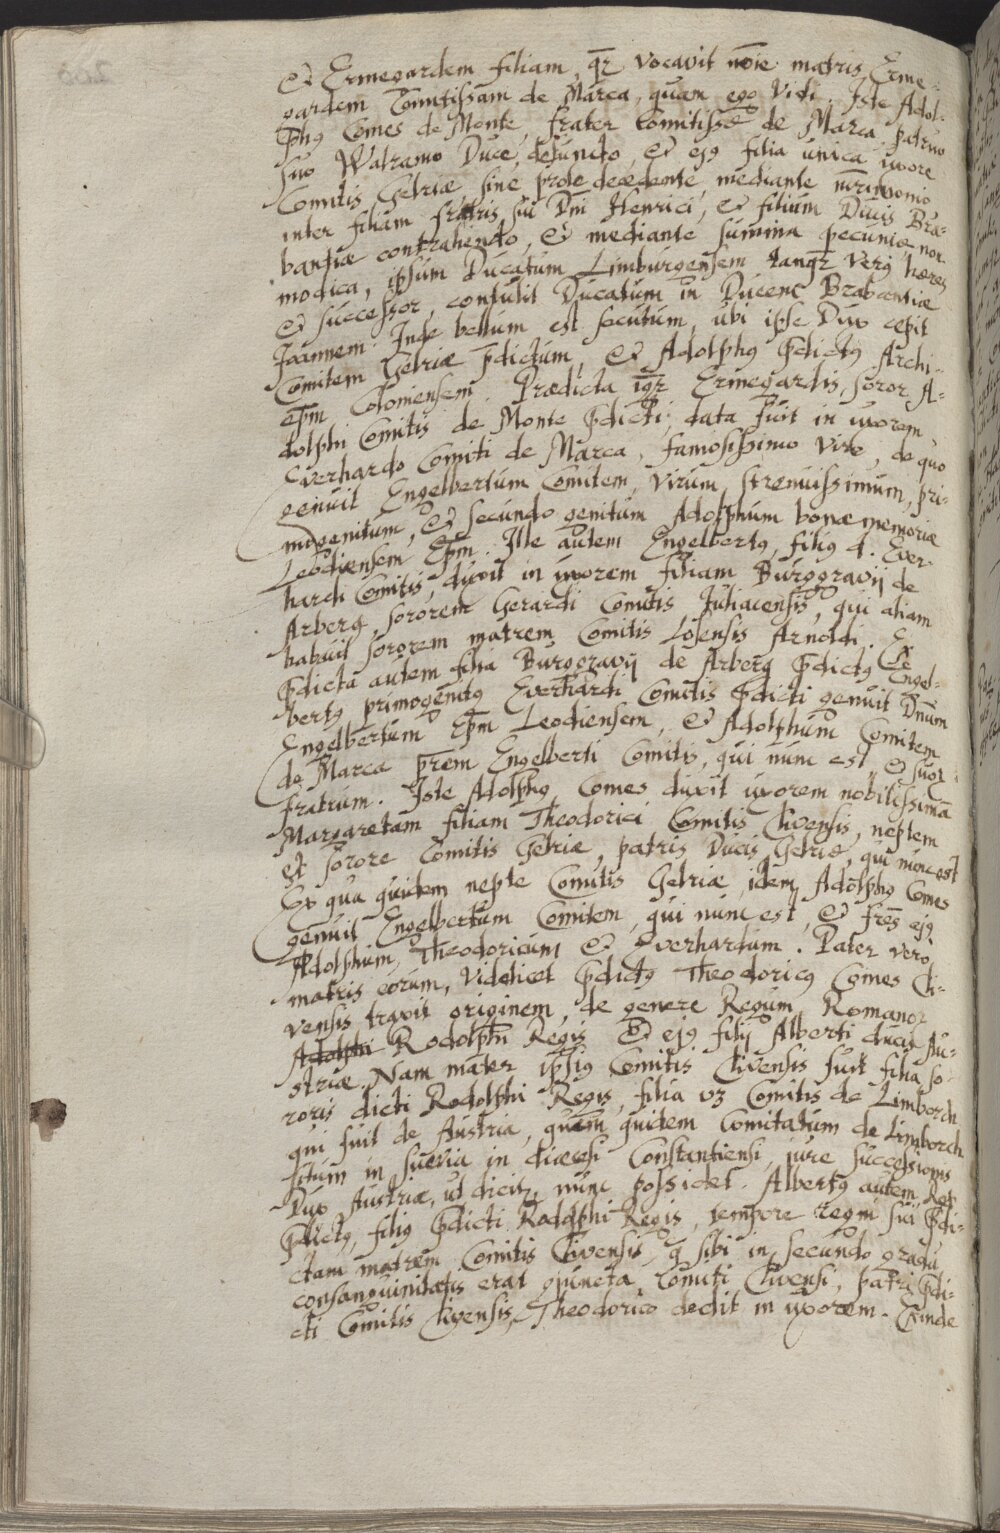 et Ermegardem filiam, qr vocavit noie matris, Erme-
gardem Comitissam de Marca, quam ego vidi. Iste Adol-
phꝰ Comes de Monte, frater Comitissæ de Marca, patruo
suo Walramo Duce, defuncto, et ejꝰ filia unica uxore
Comitis Gelriæ sine prole decedente, mediante mrimonio
inter filiam fratris sui Dni Henrici, et filium Ducis Bra-
bantiæ contrahendo, et mediante summa pecuniæ non
modica, ipsum Ducatum Limburgensem tanqꝫ verꝰ hæres
et successor, contulit Ducatum in Ducem Brabantiæ
Joannem. Inde bellum est secutum, ubi ipse Dux cepit
Comitem Gelriæ pdictum, et Adolphꝰ pdictꝰ Archi-
epm Coloniensem. Prædicta igr Ermegardis, soror A-
dolphi Comitis de Monte pdicti, data fuit in uxorem
Everhardo Comiti de Marca, famosissimo viro, de quo
genuit Engelbertum Comitem, virum strenuissimum, pri-
mogenitum, et secundo genitum Adolphum bonæ memoriæ
Leodiensem Epm. Ille autem Engelbertꝰ, filiꝰ d. Ever-
hardi Comitis, duxit in uxorem filiam Burggravij de
Arberg, sororem Gerardi Comitis Juliacensis, qui aliam
habuit sororem matrem Comitis Losensis Arnoldi. Ex
pdicta autem filia Burggravij de Arberg pdictꝰ Engel-
bertꝰ primogenitꝰ Everhardi Comitis pdicti genuit Dnum
Engelbertum Epm Leodiensem, et Adolphum Comitem
de Marca prem Engelberti Comitis, qui nunc est, et suoꝝ
fratrum. Iste Adolphꝰ Comes duxit uxorem nobilissimā
Margaretam filiam Theodorici Comitis Clivensis, neptem
et sorore Comitis Gelriæ, patris Ducis Gelriæ, qui nunc est
Ex qua quidem nepte Comitis Gelriæ, idem Adolphꝰ Comes
genuit Engelbertum Comitem, qui nunc est, et fres ejꝰ
Adolphum, Theodoricum et Everhardum. Pater vero
matris eorum, videlicet pdictꝰ Theodoricꝰ Comes Cli-
vensis traxit originem, de genere Regum Romanoꝝ
Adolphi Rodolphi Regis et ejꝰ filij Alberti ducis Au-
striæ. Nam mater ipsiꝰ Comitis Clivensis fuit filia so-
roris dicti Rodolphi Regis, filia vz Comitis de Limborch
qui fuit de Austria, quem quidem Comitatum de Limborch
situm in Suevia in diæcesi Constantiensi, jure successionis
Dux Austriæ, ut dicitꝛ, nunc possidet. Albertꝰ autem Rex
pdictꝰ, filiꝰ pdicti Rodolphi Regis, tempore regni sui pdi-
ctam matrem Comitis Clivensis, q sibi in secundo gradu
consanguinitatis erat ꝯjuncta, Comiti Clivensi, patri pdi-
cti Comitis Clivensis, Theodorico dedit in uxorem. Exinde